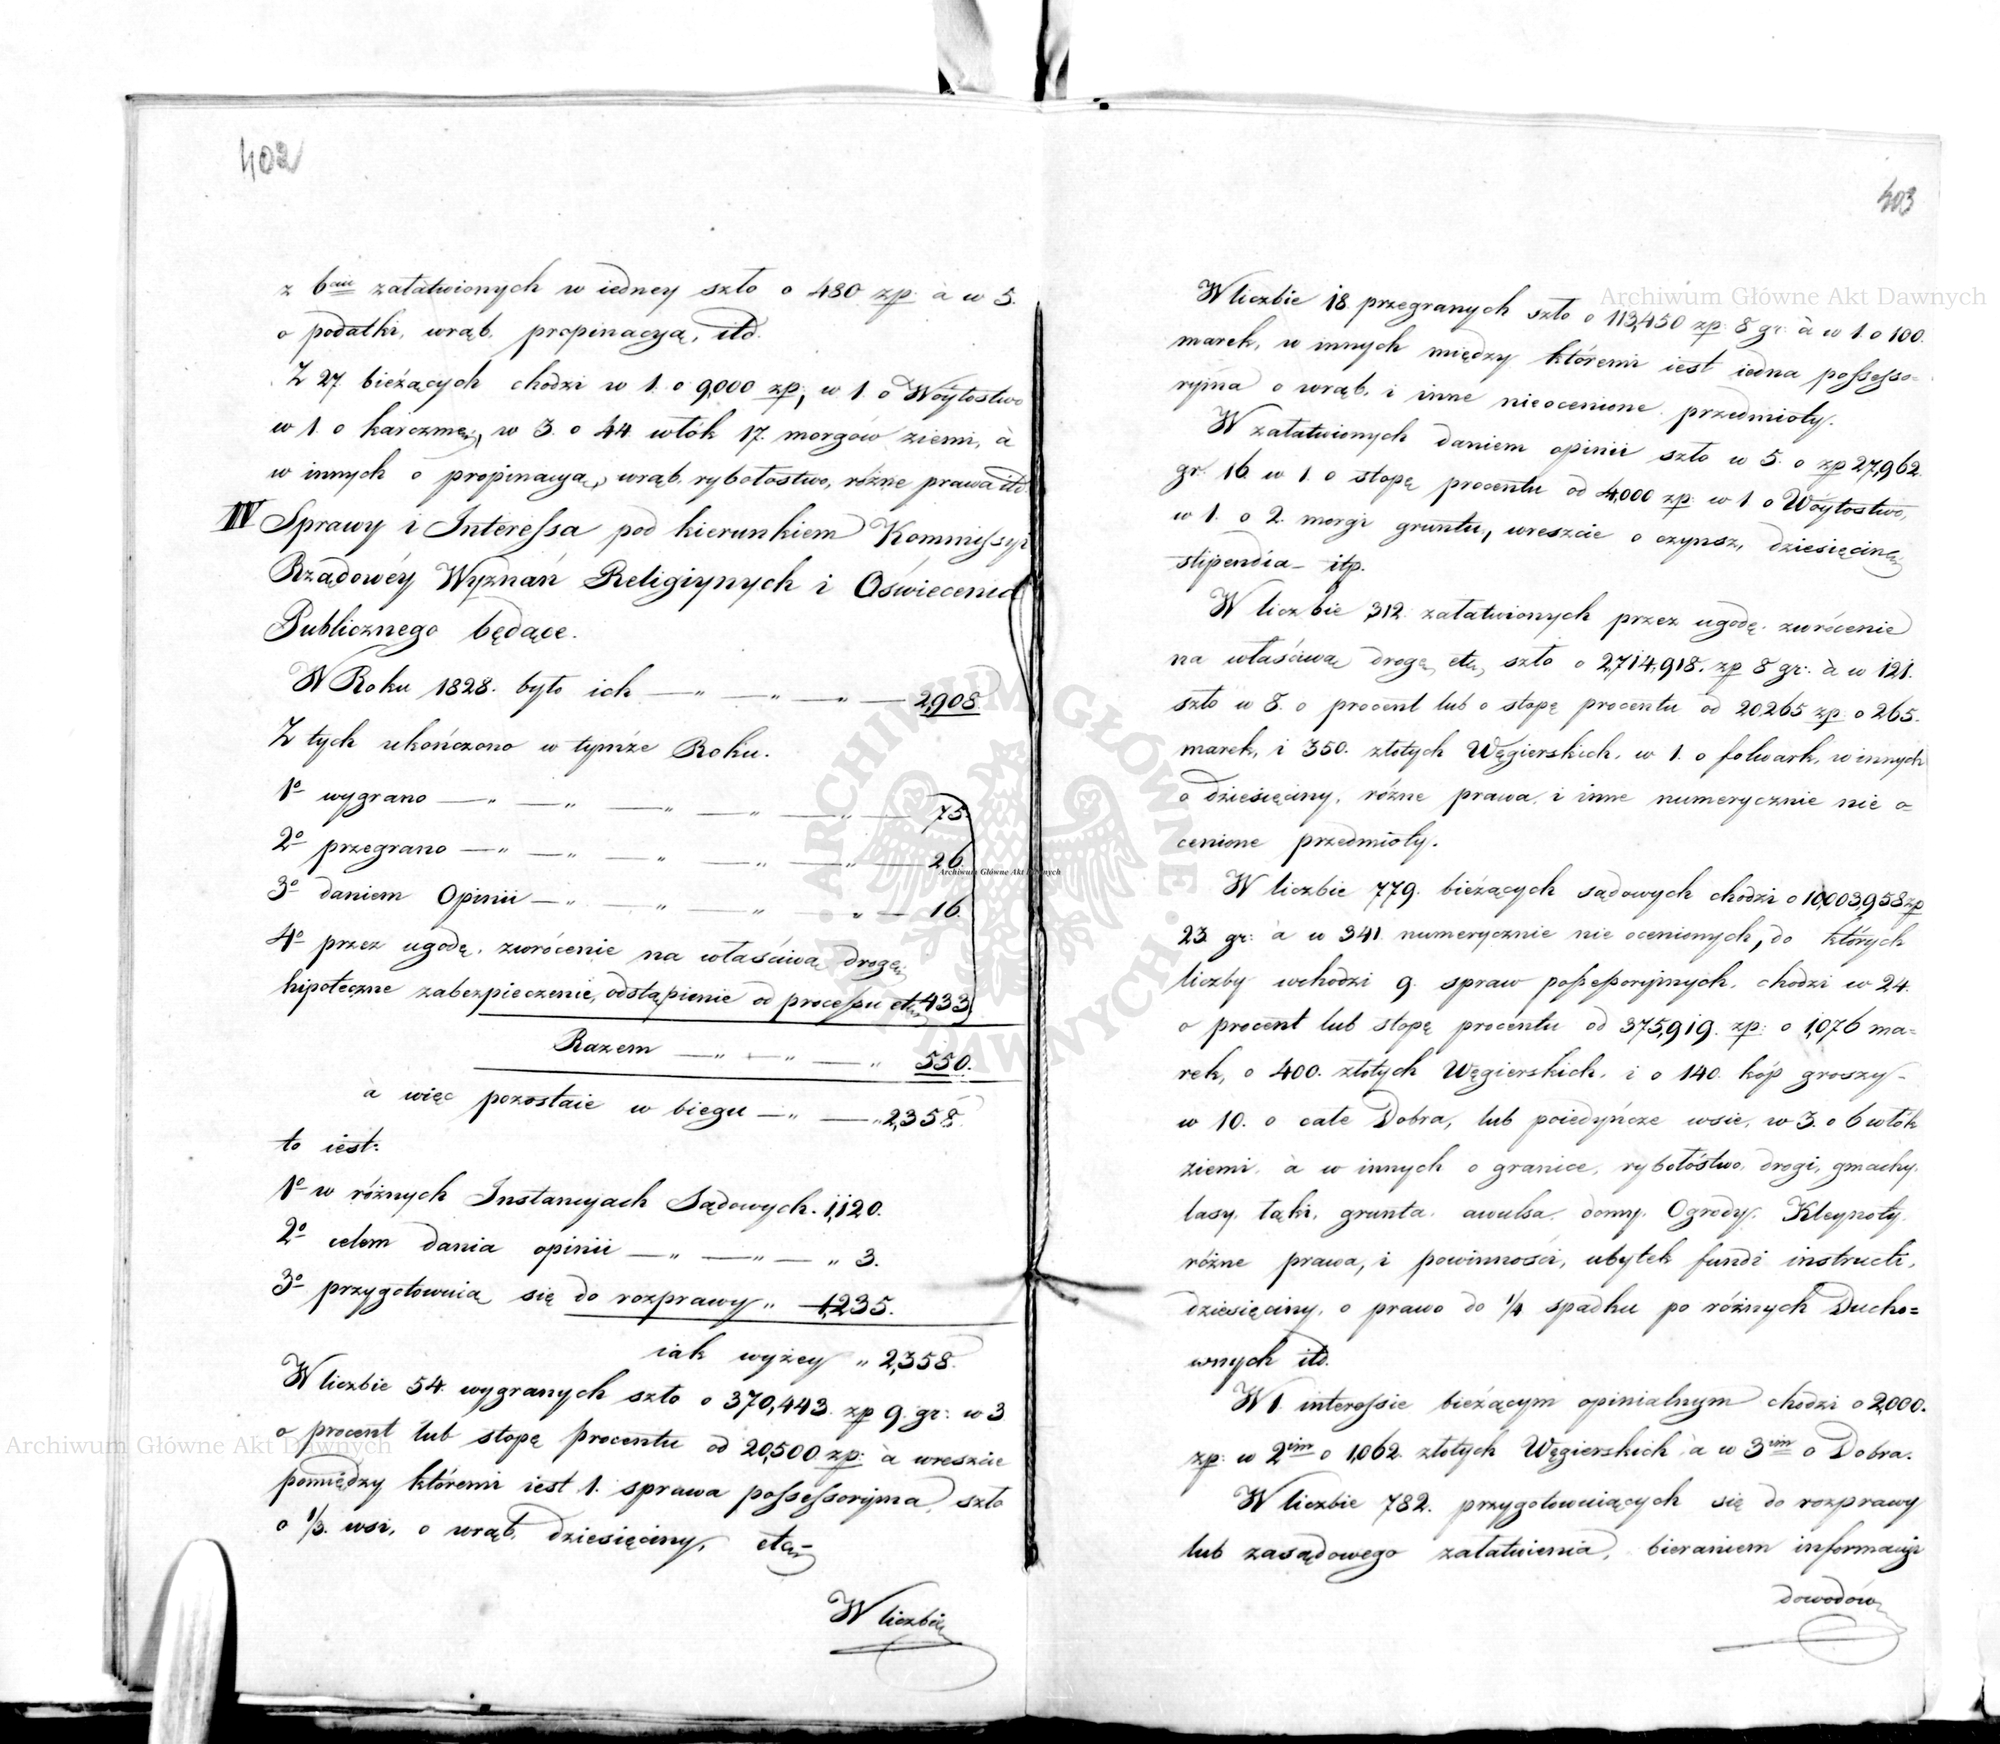 402
z 6ciu załatwionych w iedney szło o 480 zp: à w 5.
o podatki, wrąb, propinacyą, itd.
Z 27 bieżących chodzi w 1. o 9,000 zp; w 1. o Wóytostwo
w 1. o karczmę, w 3. o 44. włók 17. morgów ziemi, à
w innych o propinacyą, wrąb, rybołostwo, różne prawa itd.
IV Sprawy i Interessa pod kierunkiem Kommissyi
Rządowéy Wyznań Religiynych i Oświecenia
Publicznego będące.
W Roku 1828. było ich — „ — „ — „ — 2,908.
Z tych ukończono w tymże Roku.
1o wygrano — „ — „ — „ — „ — „ — 75.
2o przegrano — „ — „ — „ — „ — „ — 26.
3o daniem Opinii — „ — „ — „ — „ — 16.
4o przez ugodę, zwrócenie na właściwą drogę,
hipoteczne zabezpieczenie, odstąpienie od processu etc. 433.
Razem — „ — „ — „ 550.
à więc pozostaie w biegu — „ — „ 2,358.
to iest:
1o w różnych Instancyach Sądowych. 1,120.
2o celem dania opinii — „ — „ — „ 3.
3o przygotowuią się do rozprawy „ 1,235.
iak wyżey „ 2,358.
W liczbie 54. wygranych szło o 370,443. zp 9. gr: w 3
o procent lub stopę procentu od 20,500 zp: à wreszcie
pomiędzy któremi iest 1. sprawa possessoryina, szło
o 1/3. wsi, o wrąb, dziesięciny, etc.
W liczbie
403
W liczbie 18. przegranych szło o 113,450 zp: 8 gr: à w 1. o 100.
marek, w innych między któremi iest iedna possesso=
ryina o wrąb, i inne nieocenione przedmioty.
W załatwionych daniem opinii szło w 5. o zp 27,962.
gr: 16. w 1. o stopę procentu od 4,000 zp: w 1 o Wóytostwo,
w 1. o 2. morgi gruntu, wreszcie o czynsz, dziesięcinę,
stipendia itp.
W liczbie 312. załatwionych przez ugodę, zwrócenie
na właściwą drogę, etc, szło o 2,714,918. zp 8 gr: à w 121.
szło w 8. o procent lub o stopę procentu od 20265 zp: o 265.
marek, i 350. złotych Węgierskich, w 1. o folwark, w innych
o dziesięciny, różne prawa, i inne numerycznie nie o=
cenione przedmioty.
W liczbie 779. bieżących sądowych chodzi o 10,003,958 zp
23 gr: à w 341 numerycznie nie ocenionych, do których
liczby wchodzi 9. spraw possessoryinych, chodzi w 24.
o procent lub stopę procentu od 375,919. zp: o 1,076 ma=
rek, o 400. złotych Węgierskich, i o 140. kóp groszy
w 10. o całe Dobra, lub poiedyńcze wsie, w 3. o 6 włók
ziemi, à w innych o granice, rybołóstwo, drogi, gmachy,
lasy, łąki, grunta, awulsa, domy, Ogrody, Kleynoty,
różne prawa, i powinności, ubytek fundi instructi,
dziesięciny, o prawo do 1/4 spadku po różnych Ducho=
wnych itd.
W 1. interessie bieżącym opinialnym chodzi o 2,000.
zp: w 2im o 1,062. złotych Węgierskich à w 3im o Dobra.
W liczbie 782. przygotowuiących się do rozprawy
lub zasądowego załatwienia, bieraniem informacyi
dowodów
Archiwum Główne Akt Dawnych
Archiwum Główne Akt Dawnych
Archiwum Główne Akt Dawnych
ARCHIWUM GŁÓWNE AKT DAWNYCH